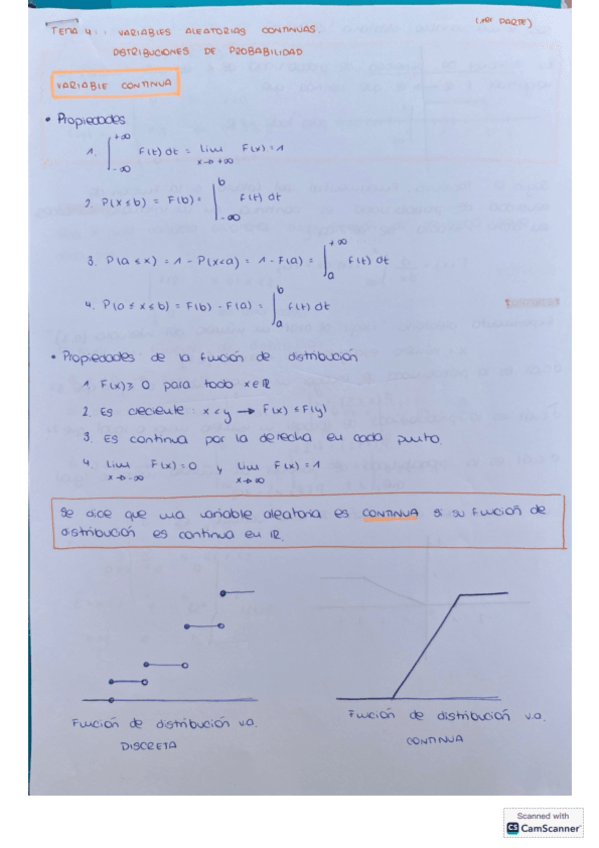 TEMA 4: VARIABLES ALEATORIAS CONTINUAS. (1ª PARTE)
DISTRIBUCIONES DE PROBABILIDAD
VARIABLE CONTINUA
• Propiedades
1. ∫_{-∞}^{+∞} f(t) dt = lim_{x→+∞} F(x) = 1
2. P(x ≤ b) = F(b) = ∫_{-∞}^{b} f(t) dt
3. P(a ≤ x) = 1 - P(x<a) = 1 - F(a) = ∫_{a}^{+∞} f(t) dt
4. P(a ≤ x ≤ b) = F(b) - F(a) = ∫_{a}^{b} f(t) dt
• Propiedades de la función de distribución
1. F(x) ≥ 0 para todo x ∈ ℝ
2. Es creciente: x < y → F(x) ≤ F(y)
3. Es continua por la derecha en cada punto.
4. lim_{x→-∞} F(x) = 0 y lim_{x→∞} F(x) = 1
Se dice que una variable aleatoria es CONTINUA si su función de
distribución es continua en ℝ.
Función de distribución v.a.
DISCRETA
Función de distribución v.a.
CONTINUA
Scanned with
CS CamScanner